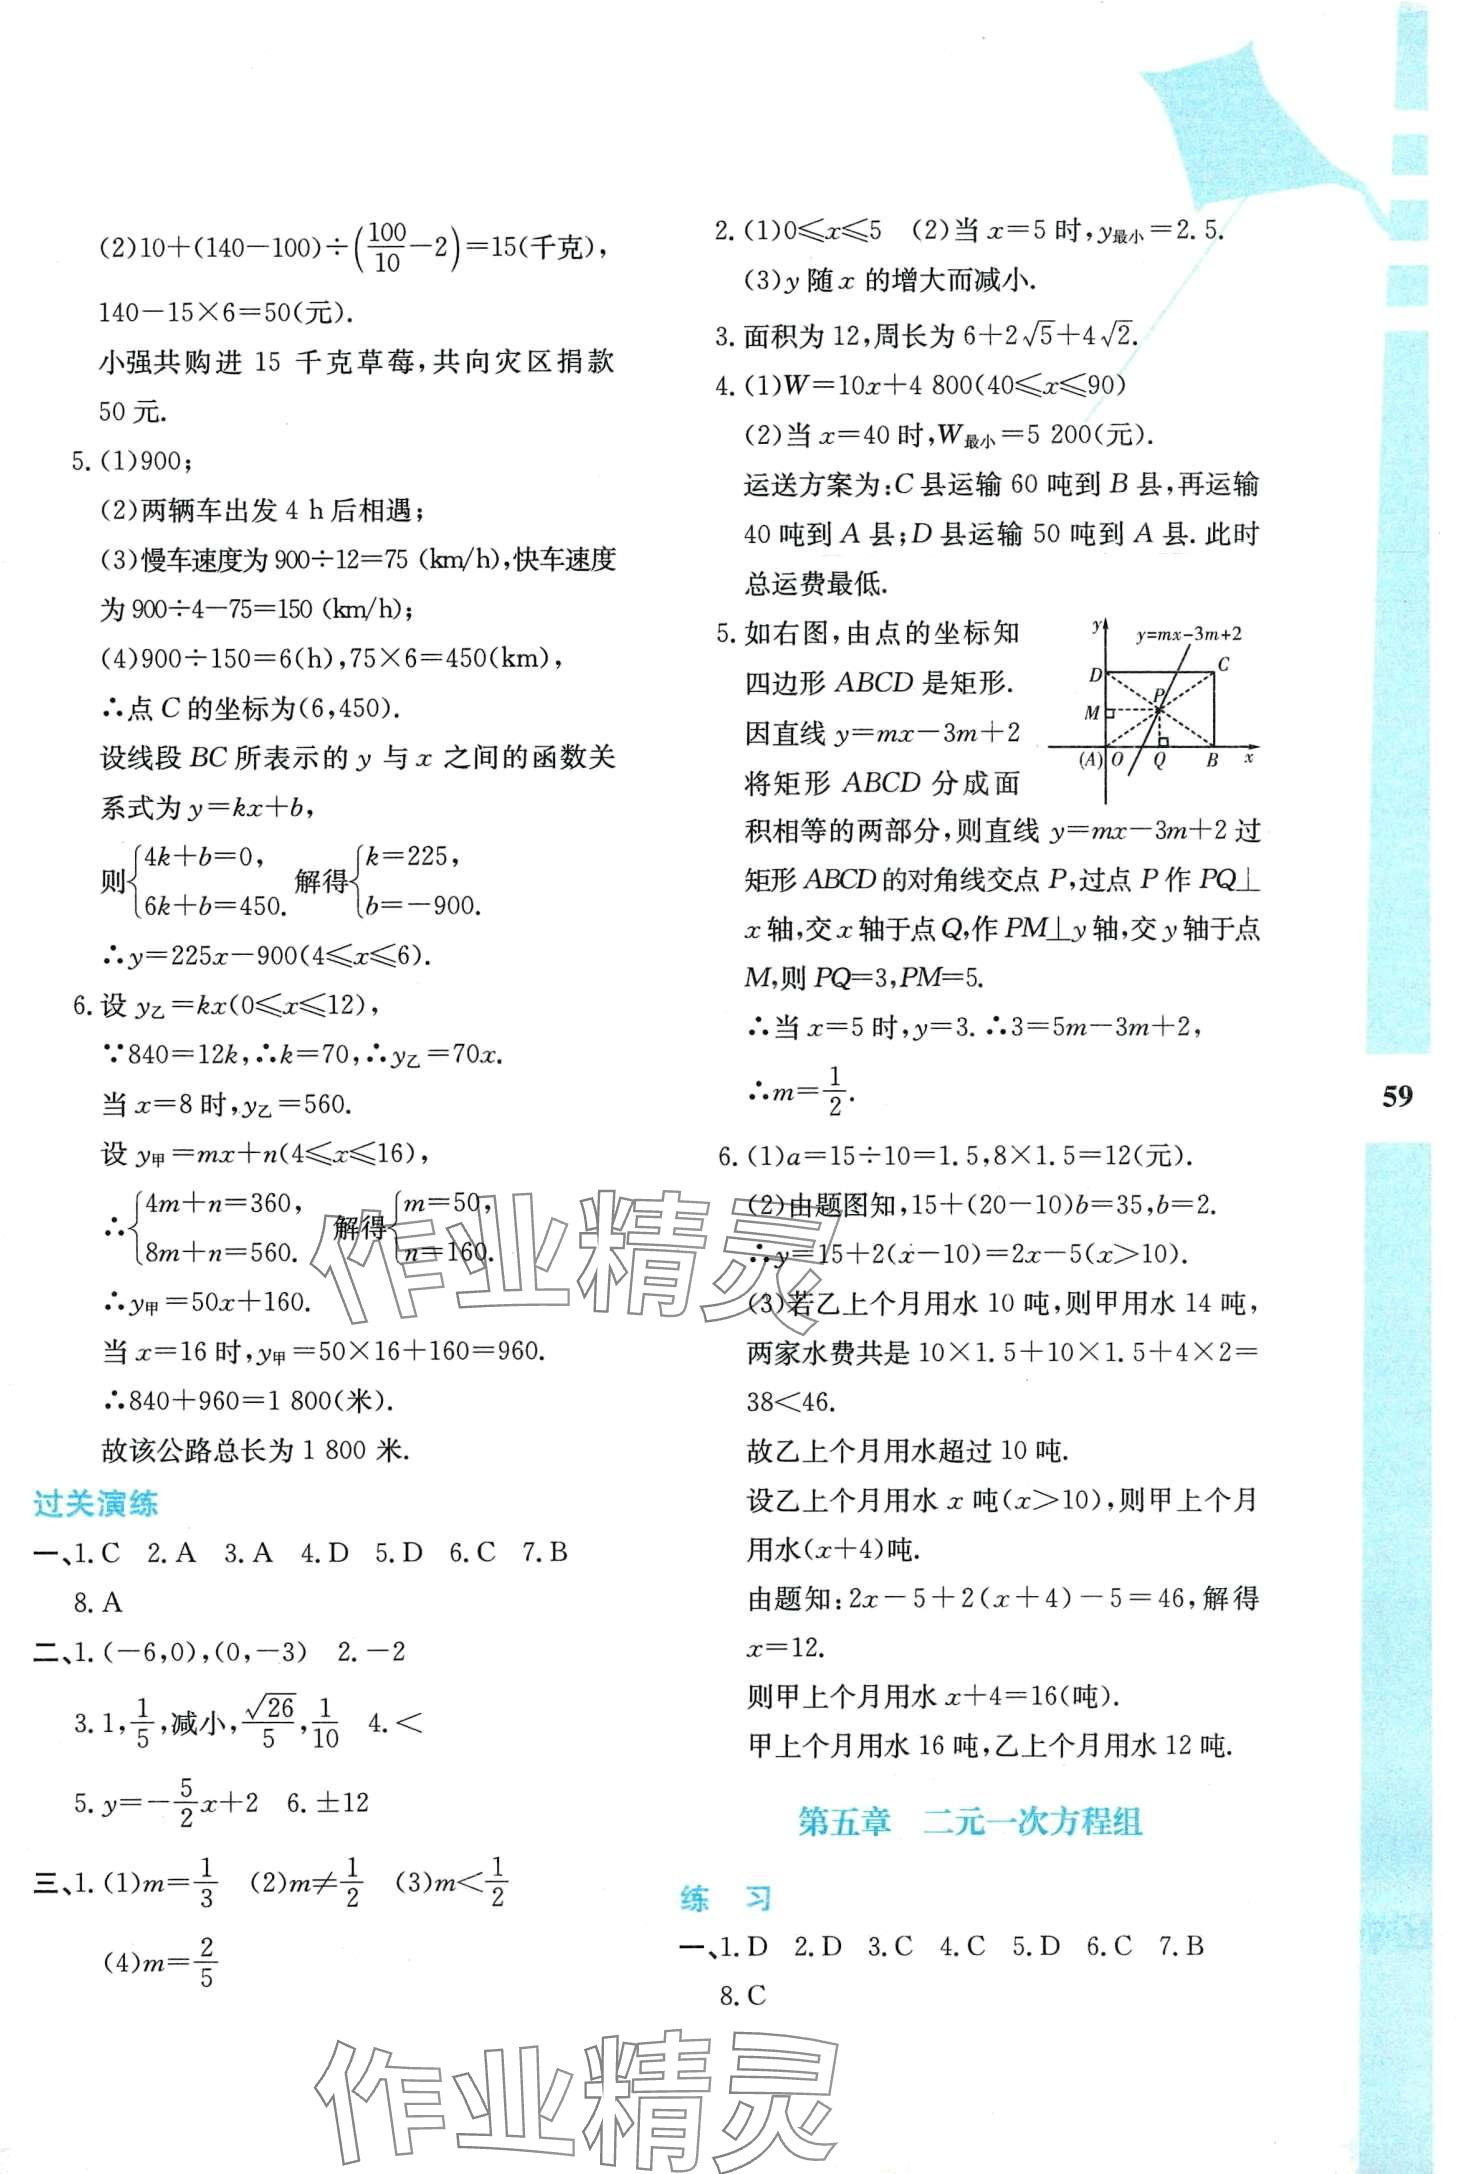 (2)10+(140-100)÷(100/10-2)=15(千克),
140-15×6=50(元).
小强共购进 15 千克草莓,共向灾区捐款
50 元.
5.(1)900;
(2)两辆车出发 4 h 后相遇;
(3)慢车速度为 900÷12=75 (km/h),快车速度
为 900÷4-75=150 (km/h);
(4)900÷150=6(h),75×6=450(km),
∴点 C 的坐标为(6,450).
设线段 BC 所表示的 y 与 x 之间的函数关
系式为 y=kx+b,
则{4k+b=0, 6k+b=450. 解得{k=225, b=-900.
∴y=225x-900(4≤x≤6).
6.设 y乙=kx(0≤x≤12),
∵840=12k,∴k=70,∴y乙=70x.
当 x=8 时,y乙=560.
设 y甲=mx+n(4≤x≤16),
∴{4m+n=360, 8m+n=560. 解得{m=50, n=160.
∴y甲=50x+160.
当 x=16 时,y甲=50×16+160=960.
∴840+960=1 800(米).
故该公路总长为 1 800 米.
过关演练
一、1.C 2.A 3.A 4.D 5.D 6.C 7.B
8.A
二、1.(-6,0),(0,-3) 2.-2
3.1,1/5,减小,√26/5,1/10 4.<
5.y=-5/2x+2 6.±12
三、1.(1)m=1/3 (2)m≠1/2 (3)m<1/2
(4)m=2/5
2.(1)0≤x≤5 (2)当 x=5 时,y最小=2.5.
(3)y 随 x 的增大而减小.
3.面积为 12,周长为 6+2√5+4√2.
4.(1)W=10x+4 800(40≤x≤90)
(2)当 x=40 时,W最小=5 200(元).
运送方案为:C 县运输 60 吨到 B 县,再运输
40 吨到 A 县;D 县运输 50 吨到 A 县.此时
总运费最低.
5.如右图,由点的坐标知
四边形 ABCD 是矩形.
因直线 y=mx-3m+2
将矩形 ABCD 分成面
y
y=mx-3m+2
D
C
P
M
(A)
O
Q
B
x
积相等的两部分,则直线 y=mx-3m+2 过
矩形 ABCD 的对角线交点 P,过点 P 作 PQ⊥
x 轴,交 x 轴于点 Q,作 PM⊥y 轴,交 y 轴于点
M,则 PQ=3,PM=5.
∴当 x=5 时,y=3.∴3=5m-3m+2,
∴m=1/2.
6.(1)a=15÷10=1.5,8×1.5=12(元).
(2)由题图知,15+(20-10)b=35,b=2.
∴y=15+2(x-10)=2x-5(x>10).
(3)若乙上个月用水 10 吨,则甲用水 14 吨,
两家水费共是 10×1.5+10×1.5+4×2=
38<46.
故乙上个月用水超过 10 吨.
设乙上个月用水 x 吨(x>10),则甲上个月
用水(x+4)吨.
由题知:2x-5+2(x+4)-5=46,解得
x=12.
则甲上个月用水 x+4=16(吨).
甲上个月用水 16 吨,乙上个月用水 12 吨.
第五章 二元一次方程组
练 习
一、1.D 2.D 3.C 4.C 5.D 6.C 7.B
8.C
59
作业精灵
作业精灵